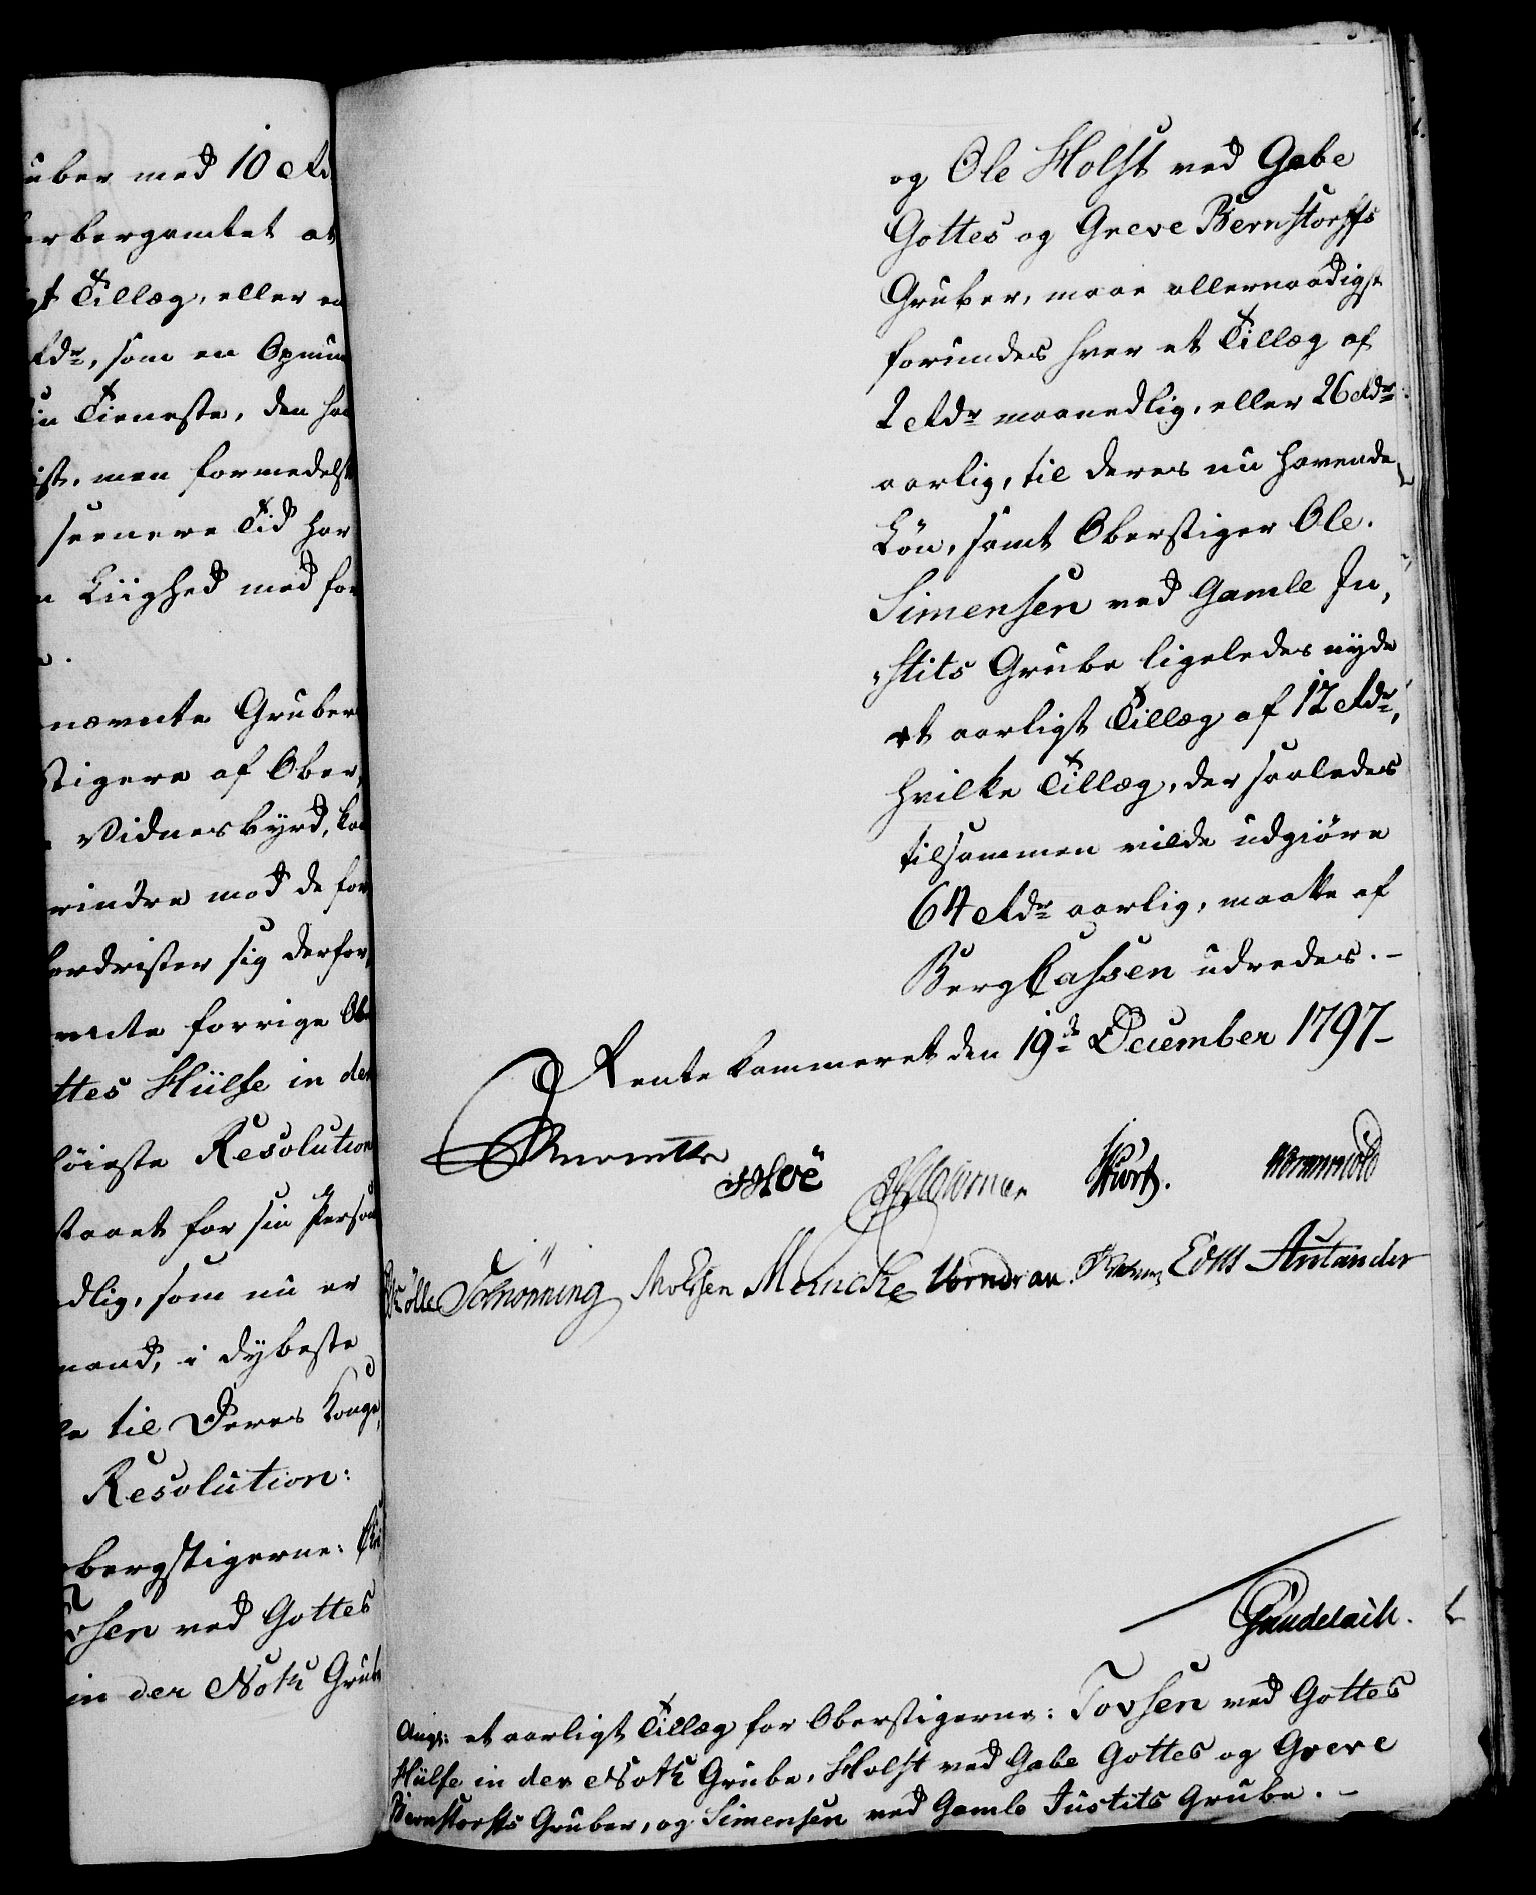 uber med 10 Rd
erbergamtet at
gt Tillæg, eller en
Rdr, som en Opmun
in Tieneste, den ha
ist, men formedelst
seenere Tid har
n Liighed med for
e.
nævnte Gruber
stigere af Ober,
Vidnesbyrd, kan
rindre mod de for
fordrister sig derfor,
nte forrige Obe
ttes Hülfe in der
høieste Resolution
staaet for sin Person
edlig, som nu er
mand, i dybeste
le til Deres Konge,
Resolution:
bergstigerne:
vsen ved Gottes
in der Noth Grube
og Ole Holst ved Gabe
Gottes og Greve Bernstorffs
Gruber, maae allernaadigst
forundes hver et Tillæg af
2 Rdr maanedlig, eller 26 Rdr
aarlig, til deres nu havende
Løn, samt Oberstiger Ole
Simensen ved Gamle Ju,
„stits Grube ligeledes nyde
et aarligt Tillæg af 12 Rdr,
hvilke Tillæg, der saaledes
tilsammen vilde udgiøre
64 Rdr aarlig, maatte af
BergCassen udredes. –
Rentekammeret den 19de December 1797 –
Hoë Wormskiold
Schrønning Moldsen Meincke Vorndran Edvs Aulander
Gundelach.
Ang: et aarligt Tillæg for Oberstigerne: Tovsen ved Gottes
Hülfe in der Noth Grube, Holst ved Gabe Gottes og Greve
Bernstorffs Gruber, og Simensen ved Gamle Justits Grube. –